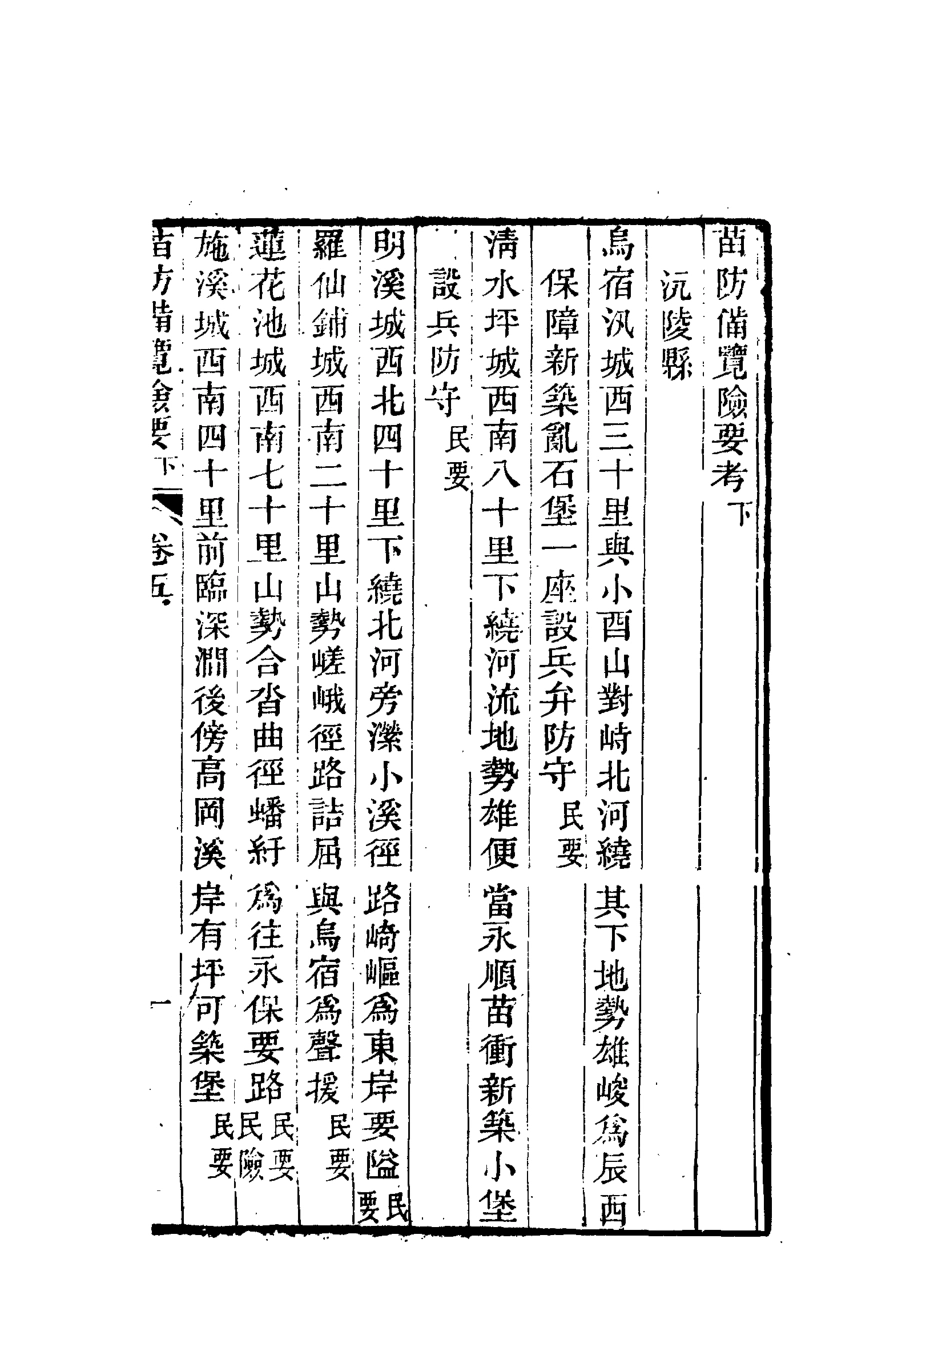 苗防備覽險要考下
沅陵縣
烏宿汛城西三十里與小酉山對峙北河繞其下地勢雄峻為辰西
保障新築亂石堡一座設兵弁防守民要
淸水坪城西南八十里下繞河流地勢雄便當永順苗衝新築小堡
設兵防守民要
明溪城西北四十里下繞北河旁濼小溪徑路崎嶇為東岸要隘民要
羅仙鋪城西南二十里山勢嵯峨徑路詰屈與烏宿為聲援民要
蓮花池城西南七十里山勢合沓曲徑蟠紆為往永保要路民要民險
施溪城西南四十里前臨深澗後傍高岡溪岸有坪可築堡民要
苗防備覽險要下 卷五 一